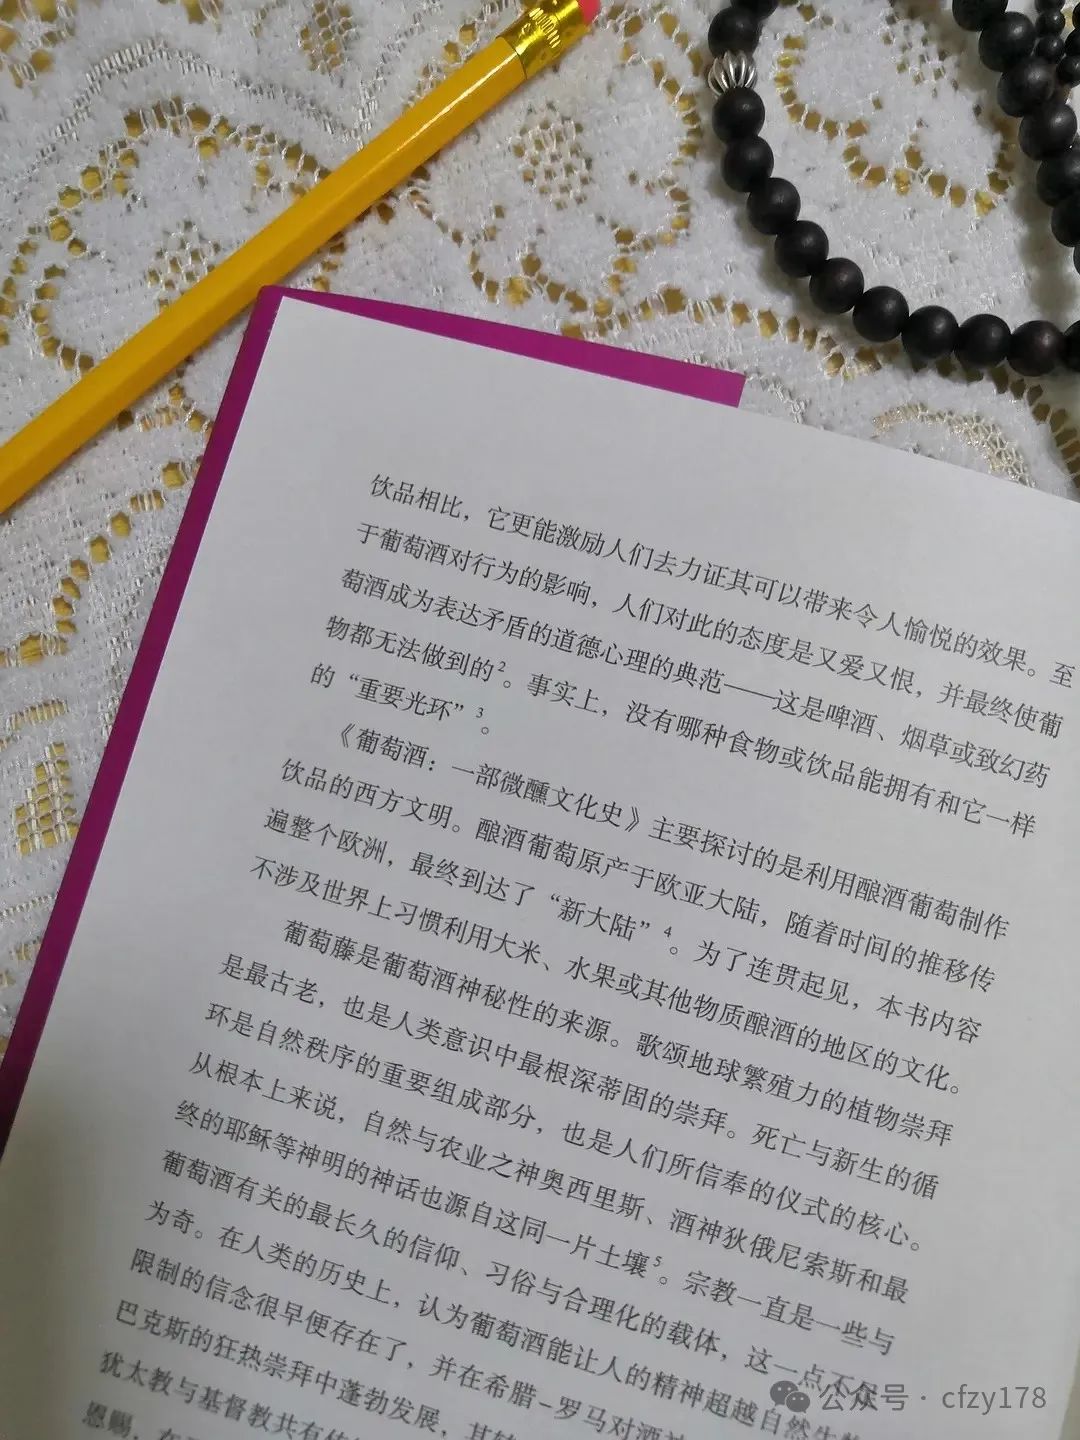 饮品相比，它更能激励人们去力证其可以带来令人愉悦的效果。至
于葡萄酒对行为的影响，人们对此的态度是又爱又恨，并最终使葡
萄酒成为表达矛盾的道德心理的典范——这是啤酒、烟草或致幻药
物都无法做到的2。事实上，没有哪种食物或饮品能拥有和它一样
的“重要光环”3。
《葡萄酒：一部微醺文化史》主要探讨的是利用酿酒葡萄制作
饮品的西方文明。酿酒葡萄原产于欧亚大陆，随着时间的推移传
遍整个欧洲，最终到达了“新大陆”4。为了连贯起见，本书内容
不涉及世界上习惯利用大米、水果或其他物质酿酒的地区的文化。
葡萄藤是葡萄酒神秘性的来源。歌颂地球繁殖力的植物崇拜
是最古老，也是人类意识中最根深蒂固的崇拜。死亡与新生的循
环是自然秩序的重要组成部分，也是人们所信奉的仪式的核心。
从根本上来说，自然与农业之神奥西里斯、酒神狄俄尼索斯和最
终的耶稣等神明的神话也源自这同一片土壤5。宗教一直是一些与
葡萄酒有关的最长久的信仰、习俗与合理化的载体，这一点不足
为奇。在人类的历史上，认为葡萄酒能让人的精神超越自然生
限制的信念很早便存在了，并在希腊-罗马对酒神
巴克斯的狂热崇拜中蓬勃发展，其
犹太教与基督教共有
恩赐，在
公众号·cfzy178